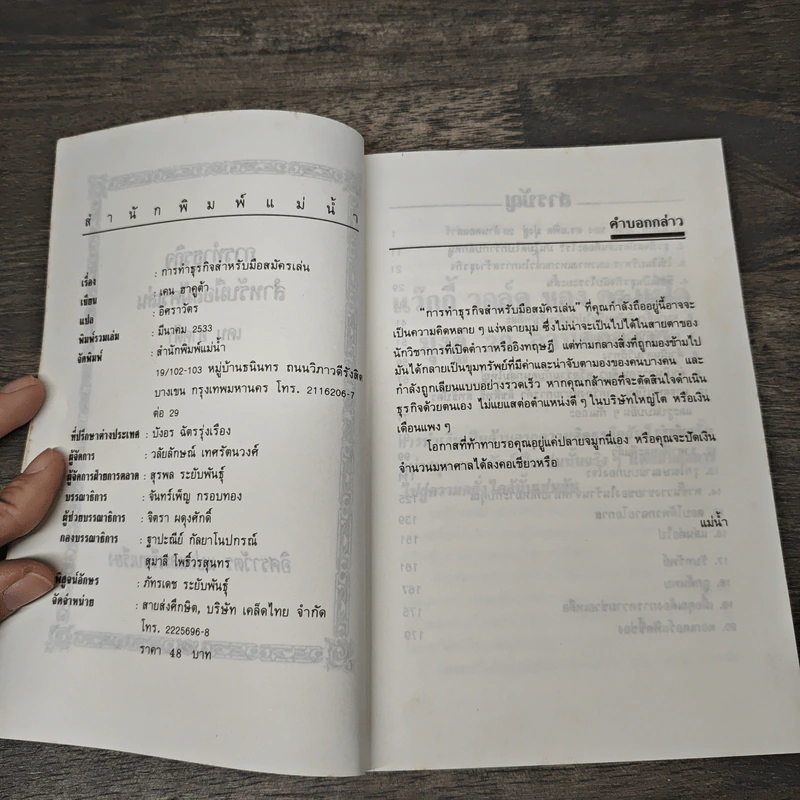 สำนักพิมพ์แม่น้ำ
เรื่อง : การทำธุรกิจสำหรับมือสมัครเล่น
เขียน : เคน ฮาคูด้า
แปล : อิศราวัตร
พิมพ์รวมเล่ม : มีนาคม 2533
จัดพิมพ์ : สำนักพิมพ์แม่น้ำ
19/102-103 หมู่บ้านธนินทร ถนนวิภาวดีรังสิต
บางเขน กรุงเทพมหานคร โทร. 2116206-7
ต่อ 29
ที่ปรึกษาต่างประเทศ : บังอร ฉัตรรุ่งเรือง
ผู้จัดการ : วลัยลักษณ์ เทศรัตนวงศ์
ผู้จัดการฝ่ายการตลาด : สุรพล ระยับพันธุ์
บรรณาธิการ : จันทร์เพ็ญ กรอบทอง
ผู้ช่วยบรรณาธิการ : จิตรา ผดุงศักดิ์
กองบรรณาธิการ : ฐาปะณีย์ กัลยาโนปกรณ์
สุมาลี โพธิ์วรสุนทร
พิสูจน์อักษร : ภัทรเดช ระยับพันธุ์
จัดจำหน่าย : สายส่งศึกษิต, บริษัท เคล็ดไทย จำกัด
โทร. 2225696-8
ราคา 48 บาท
คำบอกกล่าว
"การทำธุรกิจสำหรับมือสมัครเล่น" ที่คุณกำลังถืออยู่นี้อาจจะ
เป็นความคิดหลาย ๆ แง่หลายมุม ซึ่งไม่น่าจะเป็นไปได้ในสายตาของ
นักวิชาการที่เปิดตำราหรืออิงทฤษฎี แต่ท่ามกลางสิ่งที่ถูกมองข้ามไป
มันได้กลายเป็นขุมทรัพย์ที่มีค่าและน่าจับตามองของคนบางคน และ
กำลังถูกเลียนแบบอย่างรวดเร็ว หากคุณกล้าพอที่จะตัดสินใจดำเนิน
ธุรกิจด้วยตนเอง ไม่แยแสต่อตำแหน่งดี ๆ ในบริษัทใหญ่โต หรือเงิน
เดือนแพง ๆ
โอกาสที่ท้าทายรอคุณอยู่แค่ปลายจมูกนี่เอง หรือคุณจะปัดเงิน
จำนวนมหาศาลได้ลงคอเชียวหรือ
แม่น้ำ